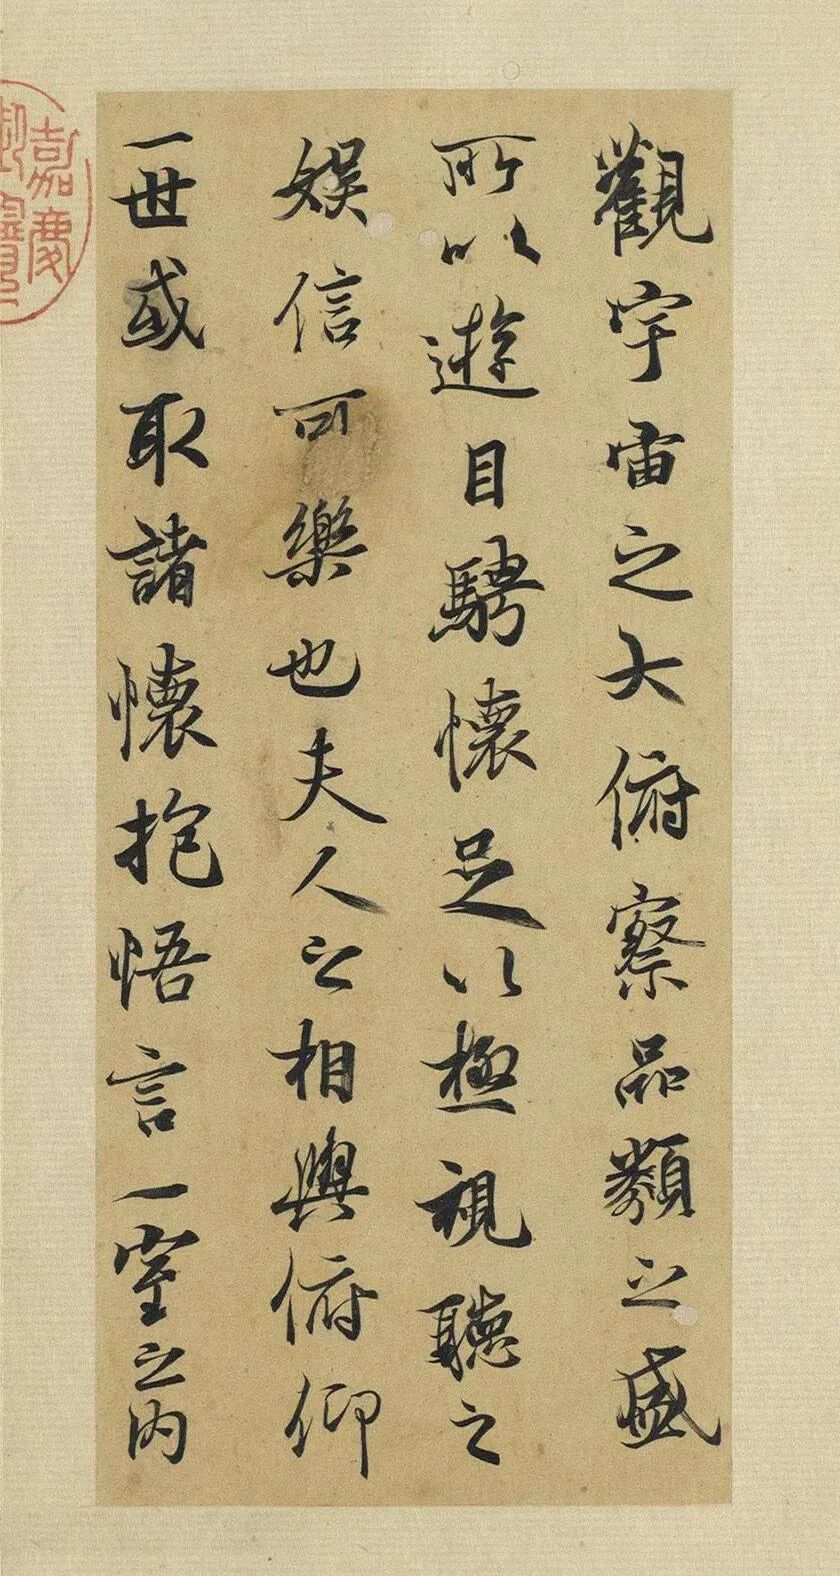 觀宇宙之大俯察品類之盛
所以遊目騁懷足以極視聽之
娛信可樂也夫人之相與俯仰
一世或取諸懷抱悟言一室之內
嘉慶
御覽